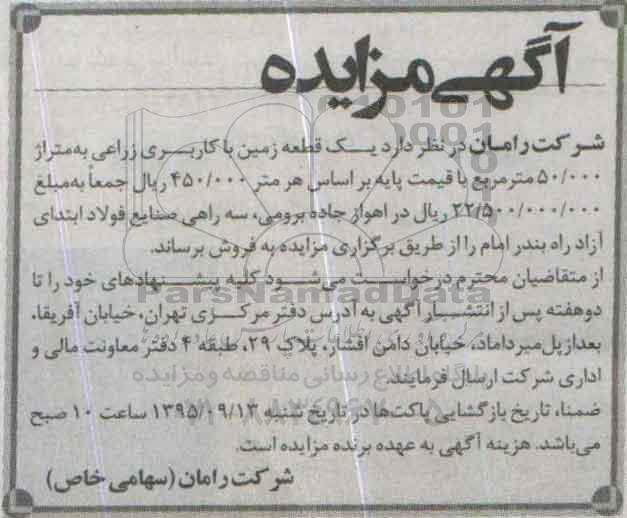 آگهی مزایده
شرکت رامان در نظر دارد یک قطعه زمین با کاربری زراعی به متراژ
۵۰/۰۰۰ مترمربع با قیمت پایه بر اساس هر متر ۴۵۰/۰۰۰ ریال جمعاً به مبلغ
۲۲/۵۰۰/۰۰۰/۰۰۰ ریال در اهواز جاده برومی، سه راهی صنایع فولاد ابتدای
آزاد راه بندر امام را از طریق برگزاری مزایده به فروش برساند.
از متقاضیان محترم درخواست می‌شود کلیه پیشنهادهای خود را تا
دو هفته پس از انتشار آگهی به آدرس دفتر مرکزی تهران، خیابان آفریقا،
بعد از پل میرداماد، خیابان دامن افشار، پلاک ۲۹، طبقه ۴ دفتر معاونت مالی و
اداری شرکت ارسال فرمایند.
ضمنا، تاریخ بازگشایی پاکت‌ها در تاریخ شنبه ۱۳۹۵/۰۹/۱۳ ساعت ۱۰ صبح
می‌باشد. هزینه آگهی به عهده برنده مزایده است.
شرکت رامان (سهامی خاص)
ParsNamadData